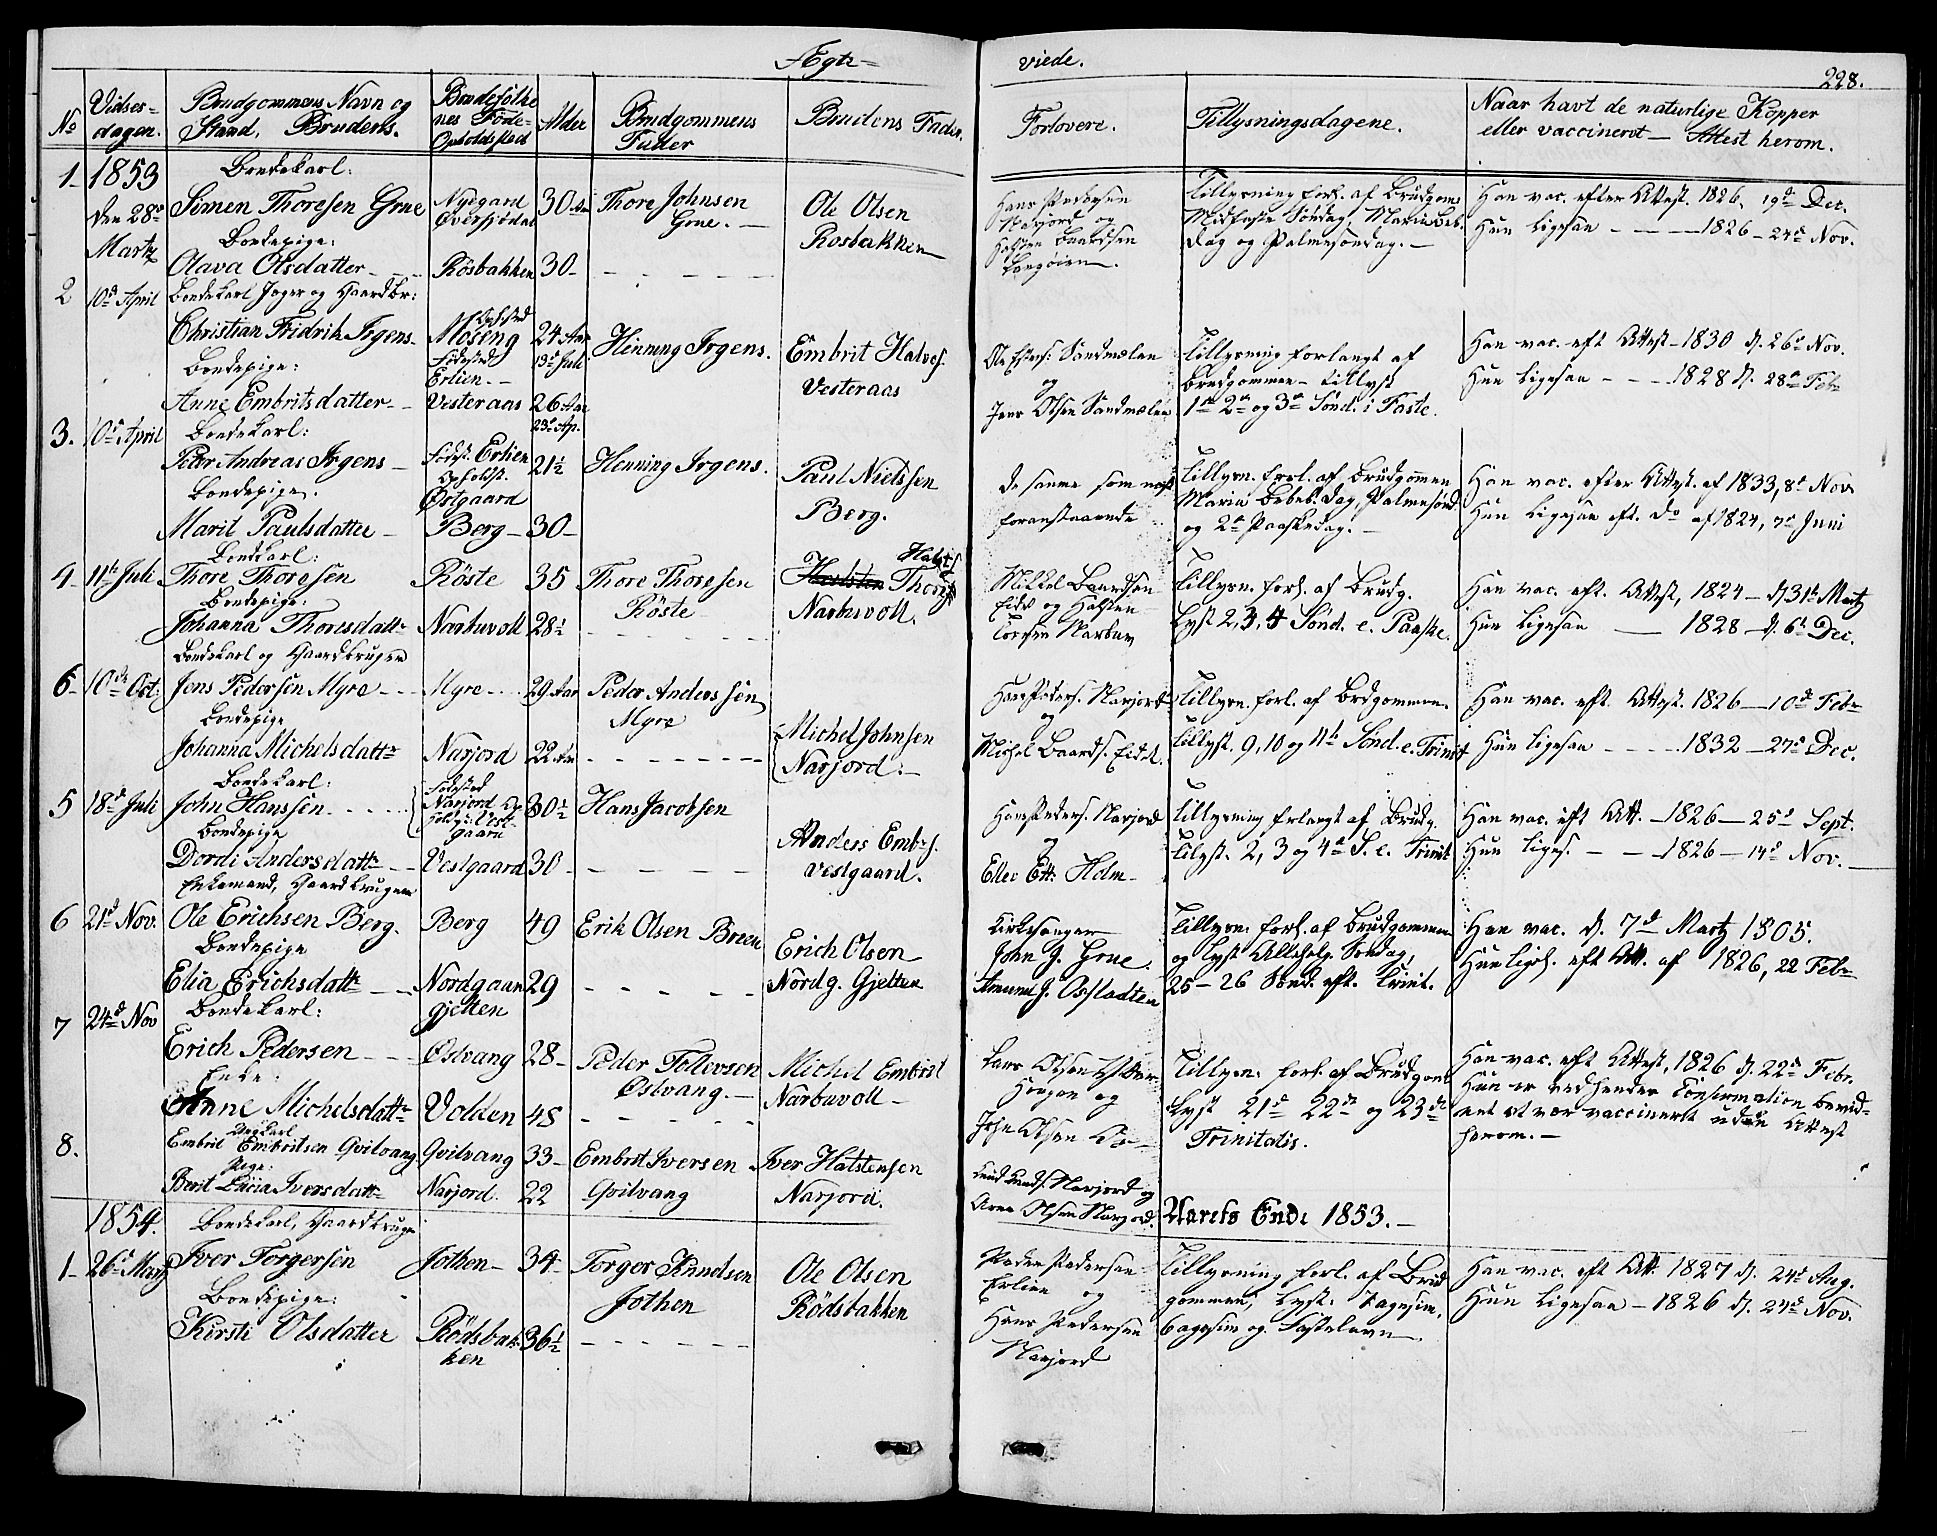 Ægte-
viede.
228.
No
Vielses-
dagen.
Brudgommens Navn og
Stand, Brudens.
Brudefolke
nes Føde-
Opholdsted
Alder
Brudgommens
Fader
Brudens Fader.
Forlovere.
Tillysningsdagene.
Naar havt de naturlige Kopper
eller vaccineret — Attest herom.
1- 1853
den 28de
Martz
Bondekarl:
Simen Thoresen Grue
Bondepige:
Olava Olsdatter
Nygard
Røsbakken
30
30-
Thore Johnsen
Grue.
Ole Olsen
Rosbakken
Hans Pedersen
Narjord og
Halsten Baardsen
Langøien.
Tillysning forl. af Brudgom
Midfaste Søndag, Mariæ Beb.
Dag og Palmesøndag.
Han vac. efter Attest. 1826, 19de Dec.
Hun ligesaa 1826 - 24de Nov.
2
10de April
Bondekarl Jæger og Gaardbr:
Christian Fridrik Irgens
Bondepige:
Anne Embritsdatter
Opholdsted
Moseng
Fødested
Erlien.
Vesteraas
24 Aar
13de Juli
26 Aar
23de Ap.
Henning Irgens.
Embrit Halvs.
Vesteraas
Ole Estens. Sandmælen
og
Jens Olsen Sandmælen
Tillysning forlangt af
Brudgommen - tillyst
1ste 2de og 3de Sønd. i Faste.
Han vac. eft Attest - 1830 d. 26de Nov.
Hun ligesaa - - - 1828 d. 28de Febr
3.
10de April
Bondekarl:
Peter Andreas Irgens
Bondepige.
Marit Paulsdatter
Fødest. Erlien
Opholdst.
Østgaard
Berg
21½
30-
Henning Irgens.
Paul Nielssen
Berg.
De samme som næst
foranstaaende
Tillysn. forl. af Brudgommen
Maria Bebeb. Dag, Palmesønd
og 2de Paaskedag.
Han vac. efter Attest. af 1833, 8de Nov
Hun ligesaa eft. do af 1824, 7de Juni
4-
11te Juli
Bondekarl:
Thore Thoresen
Bondepige:
Johanna Thoresdattr
Røste
Narbuvoll
35
28½
Thore Thoresen
Røste
Halst
Thores
Narbuvoll.
Mikkel Baardsen
Eide og Halsten
Torsen Narbuv
Tillysn. forl. af Brudg.
Lyst 2, 3, 4 Sønd. e. Paaske.
Han vac. eft. Attest, 1824 - d. 31te Martz
Hun ligesaa 1828 - d. 6te Dec.
6-
10de Oct.
Bondekarl og Gaardbruger
Jens Pedersen Myre
Bondepige
Johanna Michelsdattr
Myre
Narjord
29 Aar
22 Aar
Peder Anderssen
Myre
Michel Johnsen
Narjord.
Hans Peders. Narjord
og
Michel Baards. Eidet
Tillysn. forl. af Brdgommen.
Tillyst. 9, 10 og 11te Sønd. e. Trinit
Han vac. eft. Attest. 1826 - 10de Febr
Hun ligesaa - - - 1832 - 27de Dec.
5
18de Juli
Bondekarl:
John Hanssen
Bondepige
Dordi Andersdattr
Fødested
Narjord Op
holds: Vest-
gaard
Vestgaard
30½
30
Hans Jacobsen
Anders Embrs.
Vestgaard.
Hans Peders. Narjord
og
Tillysning forlangt af Brudg.
Tilyst. 2, 3 og 4de S. e. Trinit
Han vac. eft Att. - 1826 - 25de Sept.
Hun liges. - - 1826 - 14de Nov.
6
21de Nov.
Enkemand, Gaardbruger
Ole Erichsen Berg.
Bondepige
Elia Erichsdattr
Berg
Nordgaan
gjetten
49
29
Erik Olsen Breen
Erich Olsen
Nordg. Gjetten
Kirkesanger
John J. Grue.
Amund J. Osfladten
Tillysn. forl. af Brudgommen
og lyst Allehelg. Søndag,
25 - 26 Sønd. eft. Trinit.
Han vac. d. 7de Martz 1805.
Hun ligel. eft Att. af 1826, 22 Febr
7
24de Nov
Bondekarl:
Erich Pedersen
Enke:
Anne Michelsdattr
Østvang
Volden
28-
48
Peder Tollevsen
Østvang.
Michel Embret
Narbuvoll
John Olsen
Tillysn. forl. af Brudgom
Lyst 21de 22de og 23de
Trinitatis.
Han vac. eft Attest, 1826 d. 22de Febr.
Hun er ved hendes Confirmation bevid-
net at være vaccineret uden Attest
herom.
8.
Ungkarl
Embrit Embritsen Qvilvang
Pige:
Berit Lucia Iversdattr
Qvilvang
Narjord.
33-
22
Embret Iversen
Qvilvang
Iver Halstensen
Narjord.
Knud Knuds. Narjord og
Arne Olsen Narjord.
Aarets Ende 1853.
1854.
1-
26de Martz
Bondekarl, Gaardbruger
Iver Torgersen
Bondepige:
Kirsti Olsdatter
Jothen
Rödsbak-
ken
34-
36½
Torger Knudsen
Jothen
Ole Olsen
Rödsbakken
Peder Pedersen
Erlien og
Hans Pedersen
Narjord
Tillysning forl. af Brud
gommen, lyst:
og Fastelavn
Han vac. eft Att. 1827 d. 24de Aug.
Hun ligesaa - 1826 d. 24de Nov.